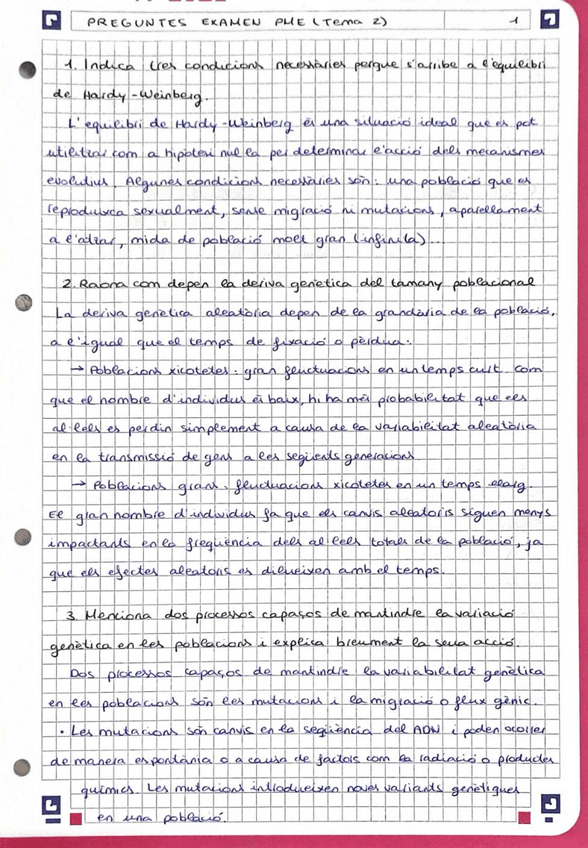 PREGUNTES EXAMEN PME (Tema 2) 1
1. Indica tres condicions necessàries perque s'arribe a l'equilibri
de Hardy-Weinberg.
L'equilibri de Hardy-Weinberg és una situació ideal que es pot
utilitzar com a hipòtesi nul·la per determinar l'acció dels mecanismes
evolutius. Algunes condicions necessàries són: una població que es
reproduisca sexualment, sense migració ni mutacions, aparellament
a l'atzar, mida de població molt gran (infinita)...
2. Raona com depen la deriva genètica del tamany poblacional
La deriva genètica aleatòria depen de la grandària de la població,
a l'igual que el temps de fixació o pèrdua:
→ Poblacions xicotetes: gran fluctuacions en un temps curt. Com
que el nombre d'individus és baix, hi ha més probabilitat que els
al·lels es perdin simplement a causa de la variabilitat aleatòria
en la transmissió de gens a les següents generacions
→ Poblacions grans: fluctuacions xicotetes en un temps llarg.
El gran nombre d'individus fa que els canvis aleatoris siguen menys
impactants en la freqüència dels al·lels totals de la població, ja
que els efectes aleatoris es dilueixen amb el temps.
3. Menciona dos processos capaços de mantindre la variació
genètica en les poblacions i explica breument la seua acció.
Dos processos capaços de mantindre la variabilitat genètica
en les poblacions són les mutacions i la migració o flux gènic.
· Les mutacions són canvis en la seqüència del ADN i poden ocórrer
de manera espontània o a causa de factors com la radiació o productes
químics. Les mutacions introdueixen noves variants genètiques
en una població.